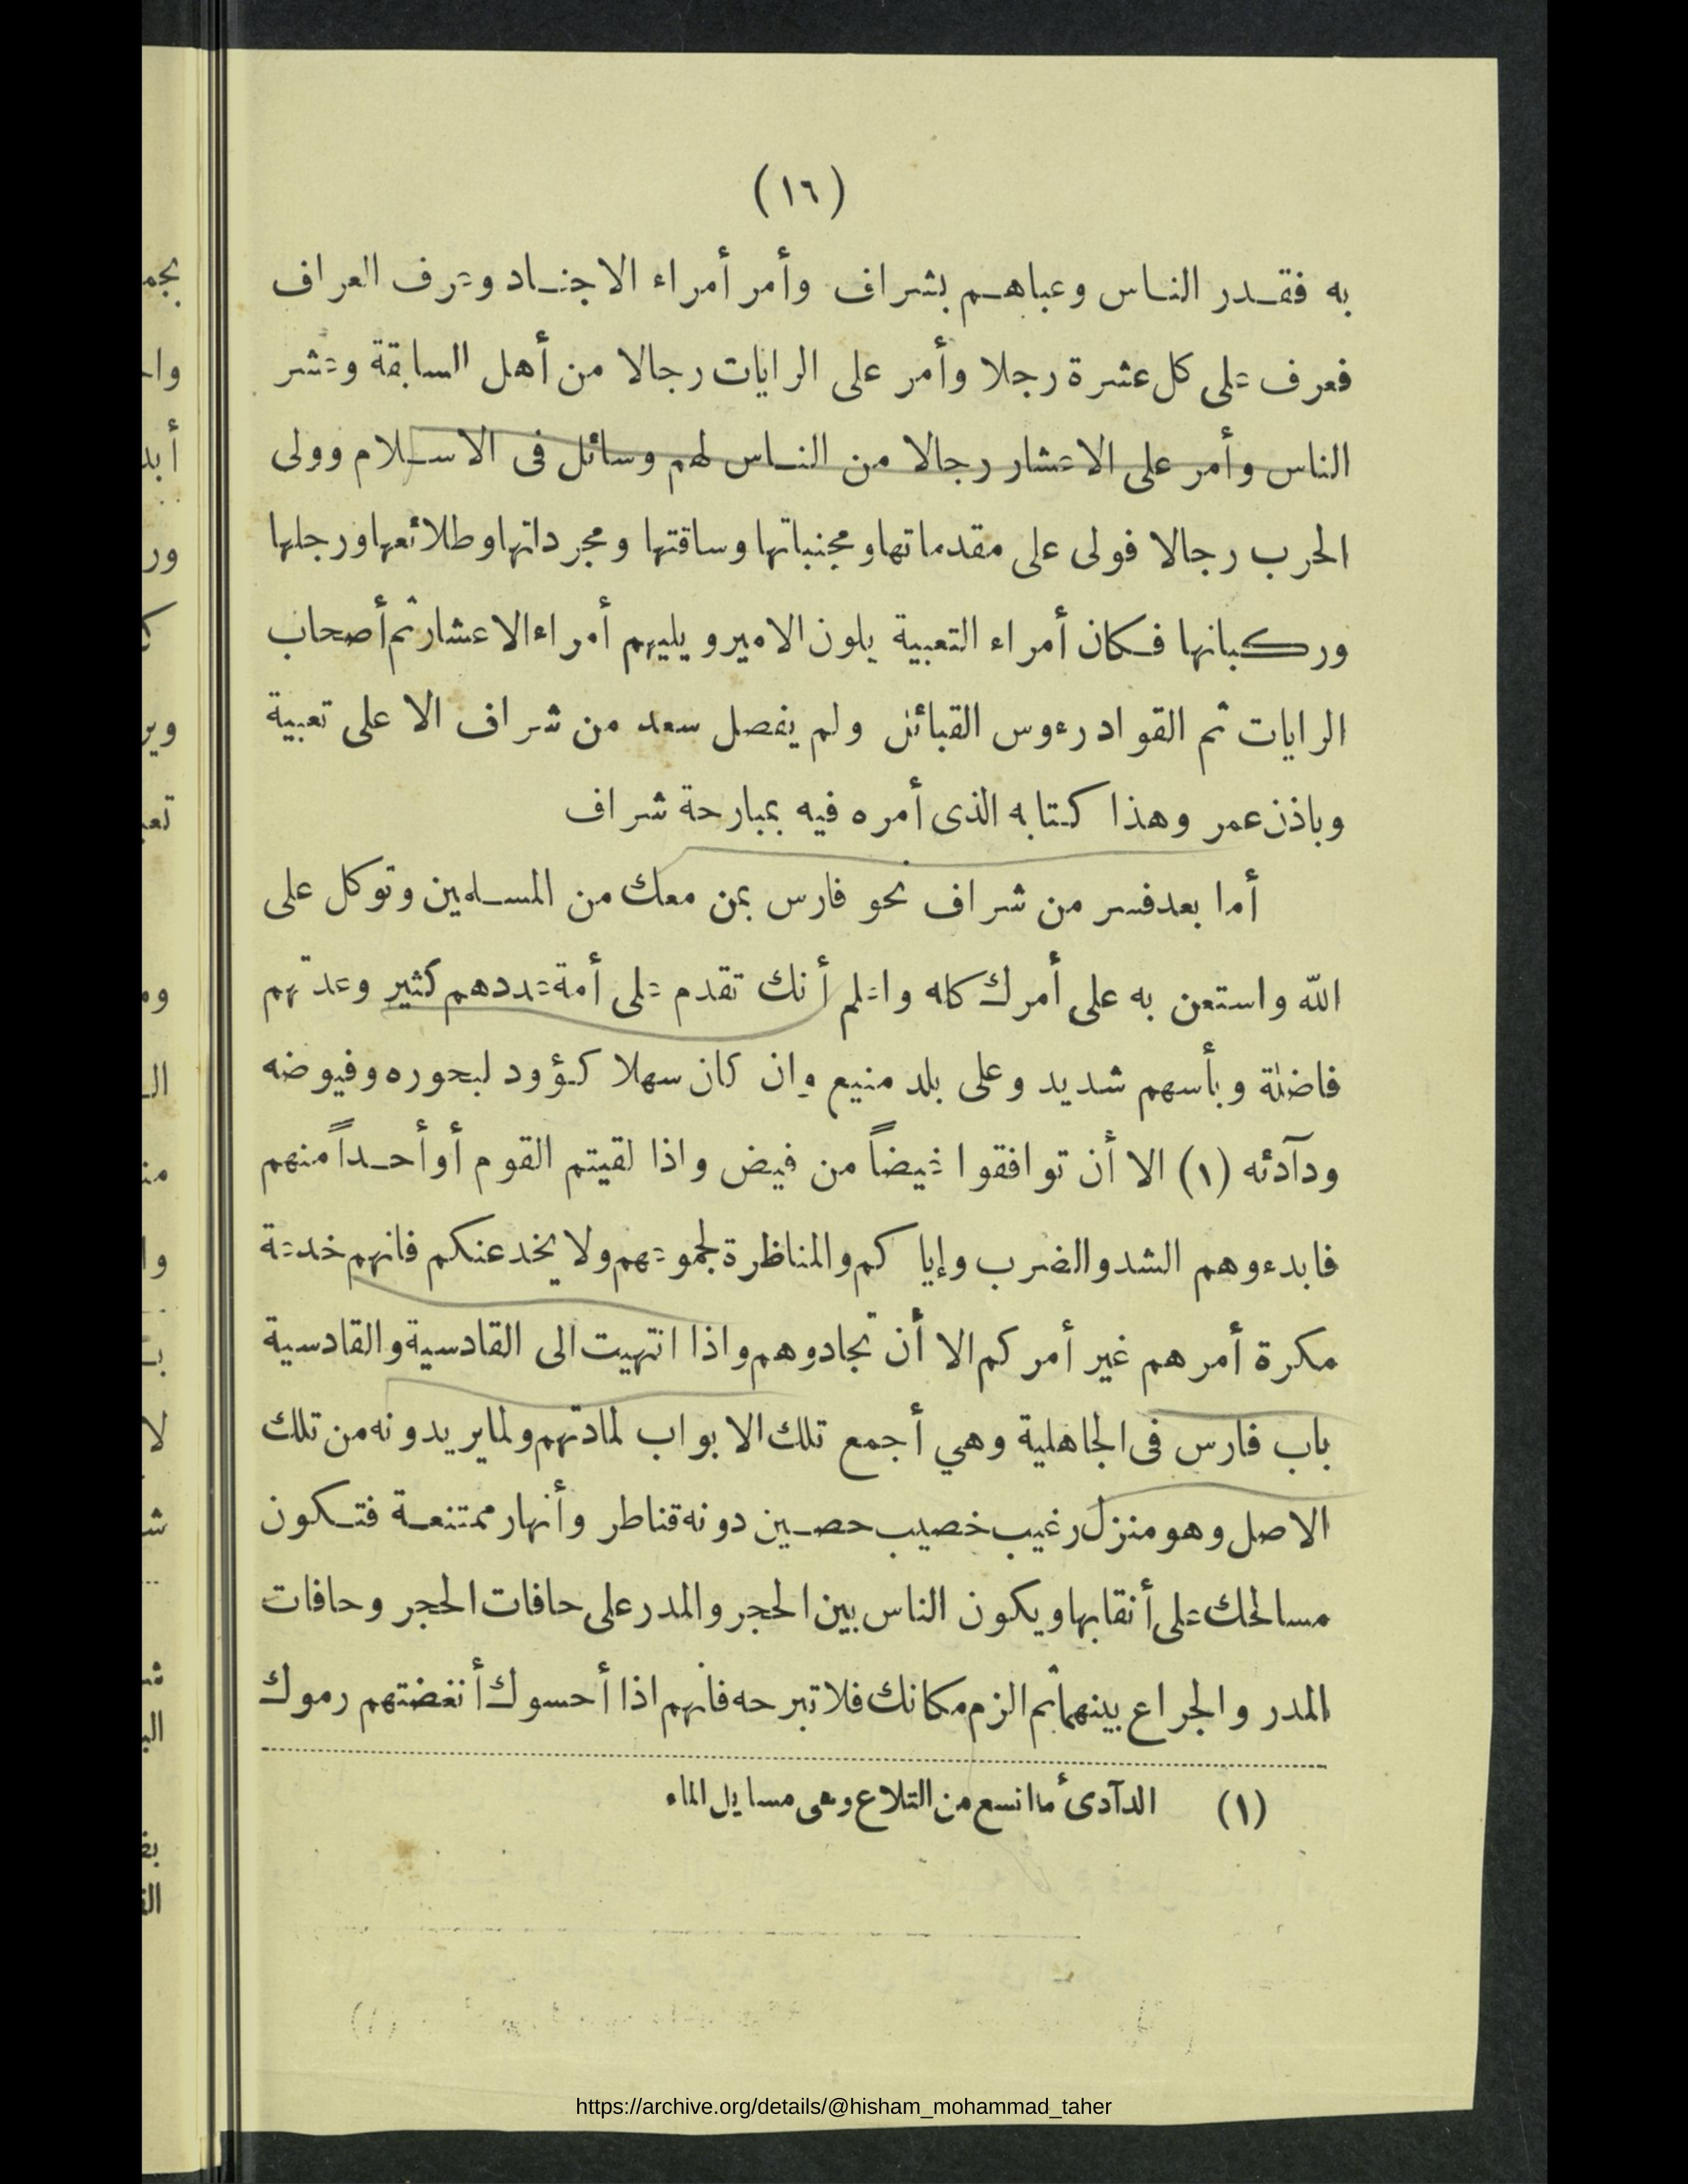 (١٦)
به فقدر الناس وعباهم بشراف وأمر أمراء الاجناد وعرف العراف
فعرف على كل عشرة رجلا وأمر على الرايات رجالا من أهل السابقة وعشر
الناس وأمر على الاعشار رجالا من الناس لهم وسائل فى الاسلام وولى
الحرب رجالا فولى على مقدماتها ومجنباتها وساقتها ومجرداتها وطلائعها ورجلها
وركبانها فكان أمراء التعبية يلون الامير ويليهم أمراء الاعشار ثم أصحاب
الرايات ثم القواد رءوس القبائل ولم يفصل سعد من شراف الا على تعبية
وباذن عمر وهذا كتابه الذى أمره فيه بمبارحة شراف
أما بعد فسر من شراف نحو فارس بمن معك من المسلمين وتوكل على
الله واستعن به على أمرك كله واعلم أنك تقدم على أمة عددهم كثير وعدتهم
فاضلة وبأسهم شديد وعلى بلد منيع وإن كان سهلا كؤود لبحوره وفيوضه
ودآدئه (١) الا أن توافقوا غيضاً من فيض واذا لقيتم القوم أو أحداً منهم
فابدءوهم الشد والضرب وإياكم والمناظرة لجموعهم ولا يخدعنكم فانهم خدعة
مكرة أمرهم غير أمركم الا أن تجادوهم واذا انتهيت الى القادسية والقادسية
باب فارس فى الجاهلية وهي أجمع تلك الابواب لمادتهم ولما يريدونه من تلك
الاصل وهو منزل رغيب خصيب حصين دونه قناطر وأنهار ممتنعة فتكون
مسالحك على أنقابها ويكون الناس بين الحجر والمدر على حافات الحجر وحافات
المدر والجراع بينهما ثم الزم مكانك فلا تبرحه فانهم اذا أحسوك أنغضتهم رموك
(١) الدآدئ ما اتسع من التلاع وهى مسايل الماء
https://archive.org/details/@hisham_mohammad_taher